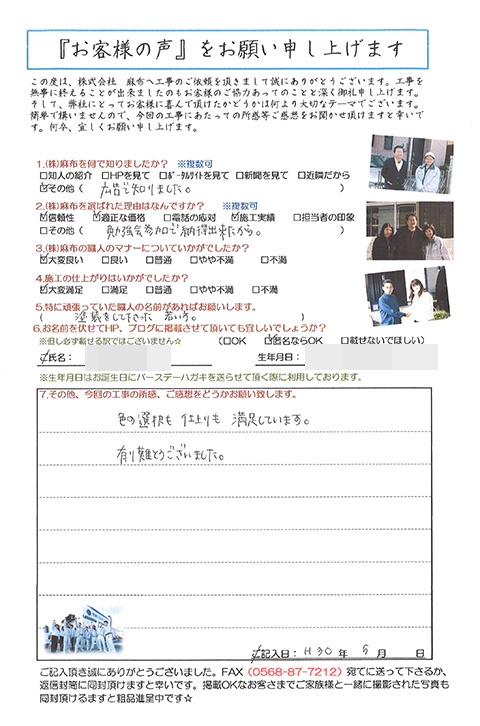 『お客様の声』をお願い申し上げます
この度は、株式会社　麻布へ工事のご依頼を頂きまして誠にありがとうございます。工事を
無事に終えることが出来ましたのもお客様のご協力あってのことと深く御礼申し上げます。
そして、弊社にとってお客様に喜んで頂けたかどうかは何より大切なテーマでございます。
簡単で構いませんので、今回の工事にあたっての所感等ご感想をお聞かせ頂けますと幸いで
す。何卒、宜しくお願い申し上げます。
1.(株)麻布を何で知りましたか？　※複数可
□知人の紹介　□HPを見て　□ﾎﾟｰﾀﾙｻｲﾄを見て　□新聞を見て　□近隣だから
☑その他（　広告で知りました。　）
2.(株)麻布を選ばれた理由はなんですか？　※複数可
☑信頼性　☑適正な価格　□電話の応対　☑施工実績　□担当者の印象
□その他（　勉強会参加で納得出来たから。　）
3.(株)麻布の職人のマナーについていかがでしたか？
☑大変良い　□良い　□普通　□やや不満　□不満
4.施工の仕上がりはいかがでしたか？
☑大変満足　□満足　□普通　□やや不満　□不満
5.特に頑張っていた職人の名前があればお願いします。
（　塗装をして下さった　若い方。　）
6.お名前を伏せてHP、ブログに掲載させて頂いても宜しいでしょうか？
※但し必ず載せる訳ではございません☆　（□OK　☑匿名ならOK　□載せないでほしい）
氏名：　生年月日：
※生年月日はお誕生日にバースデーハガキを送らせて頂く際に利用しております。
7.その他、今回の工事の所感、ご感想をどうかお願い致します。
色の選択も　仕上りも　満足しています。
有り難とうございました。
記入日：H30年　5月　日
ご記入頂き誠にありがとうございました。FAX（0568-87-7212）宛てに送って下さるか、
返信封筒に同封頂けますと幸いです。掲載OKなお客さまでご家族様と一緒に撮影された写真も
同封頂けるますと粗品進呈中です☆